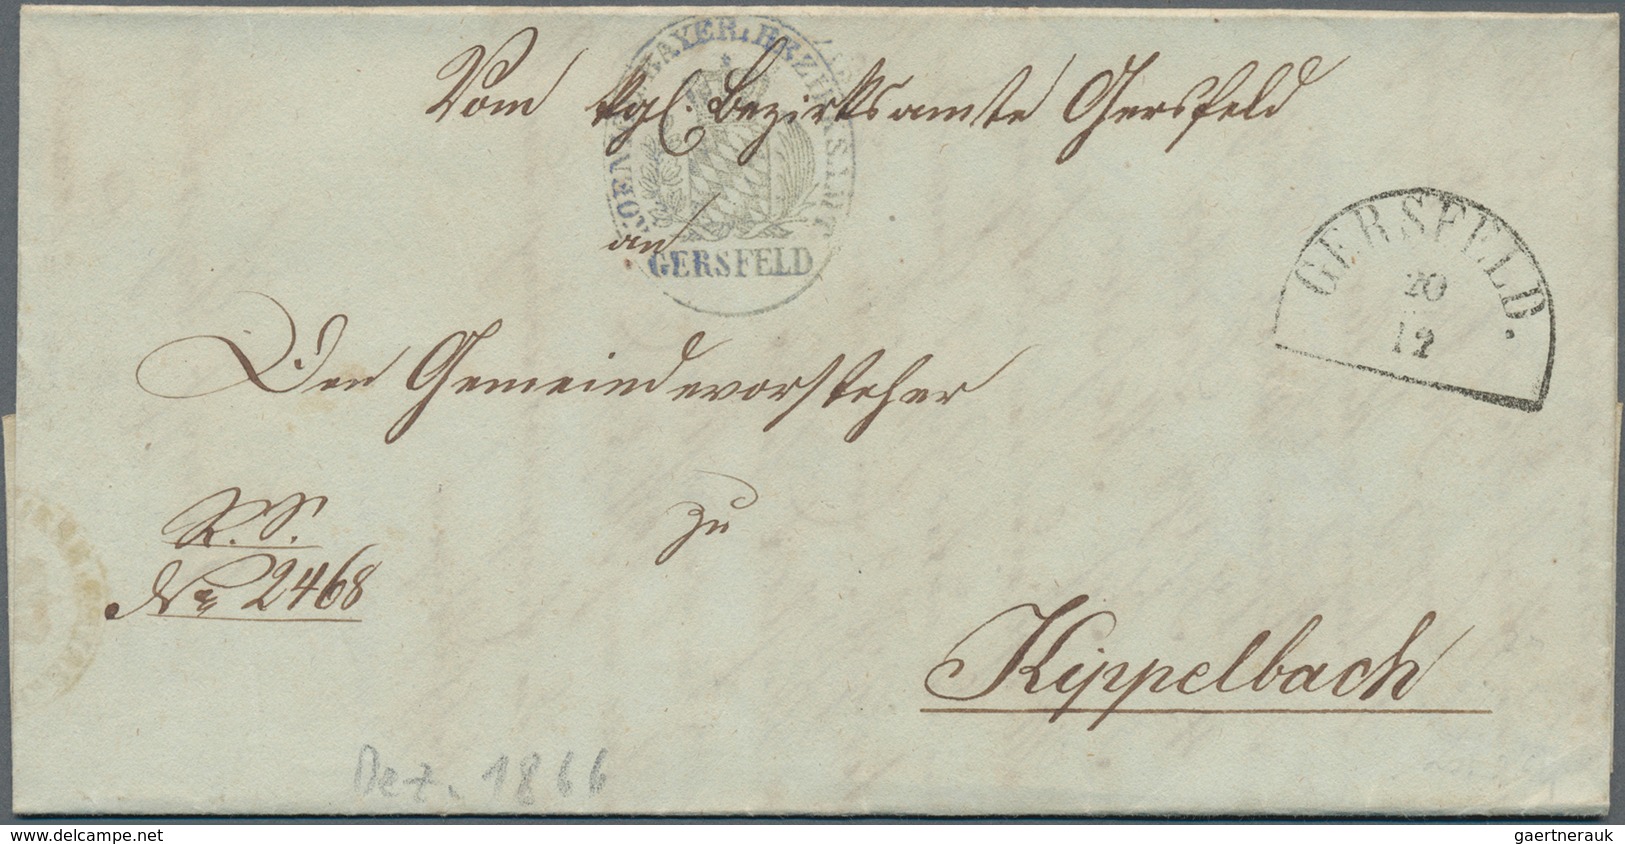 Vom kgl. Bezirksamte Gersfeld
KOENIGL. BAYER. BEZIRKSAMT
GERSFELD
an
GERSFELD.
20
12
Den Gemeindevorsteher
R. S.
zu
No 2468
Kippelbach
Dez. 1866
delcampe.net
gaertnerauk